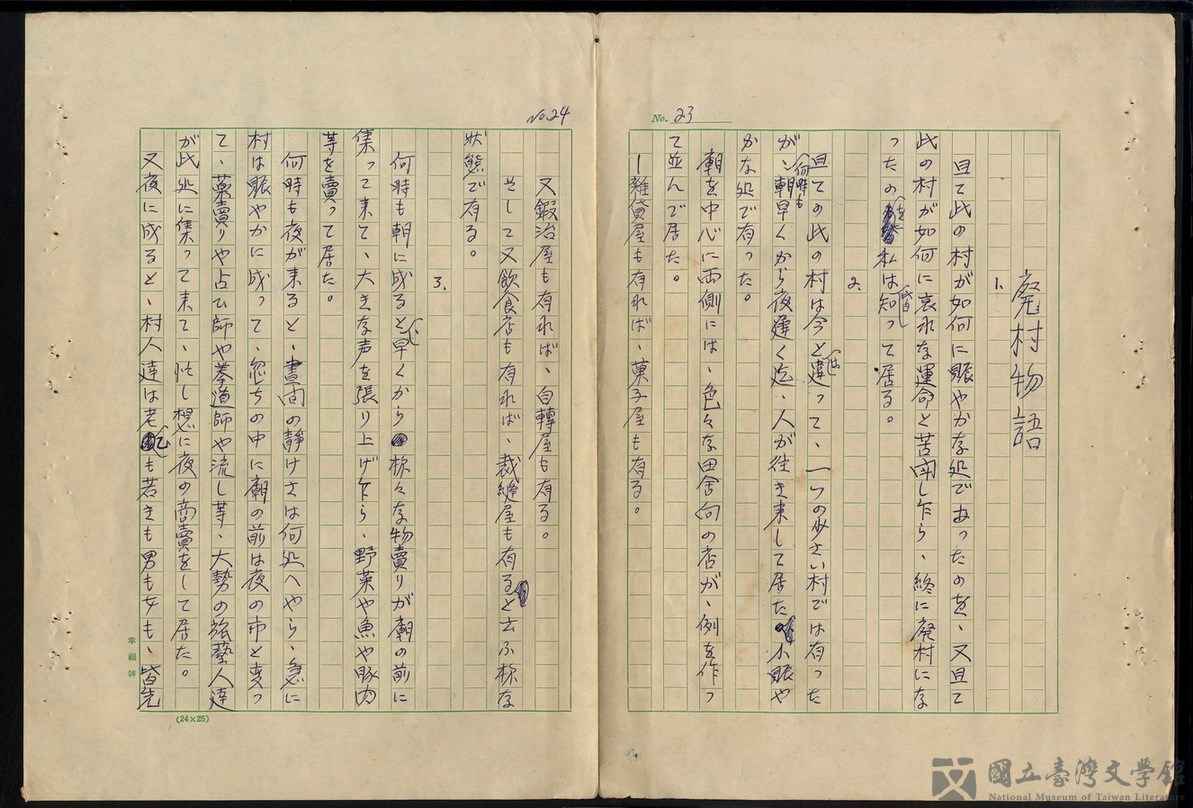 No. 23
廃村物語
1.
旦て此の村が如何に賑やかな処であったのを、又旦て
此の村が如何に哀れな運命と苦闘し乍ら、終に廃村にな
ったのを私は知って居る。
2.
旦ての此の村は今とは違って、一つの少さい村では有った
が、何時も朝早くから夜遅く迄、人が往き来して居た小賑や
かな処で有った。
廟を中心に両側には、色々な田舎向の店が、例を作っ
て並んで居た。
ー雑貨屋も有れば、菓子屋も有る。
No.24
又鍛冶屋も有れば、自轉屋も有る。
そして又飲食店も有れば、裁縫屋も有ると云ふ様な
状態で有る。
3.
何時も朝に成ると早くから様々な物賣りが廟の前に
集って来て、大きな声を張り上げ乍ら、野菜や魚や豚肉
等を賣って居た。
何時も夜が来ると、晝間の静けさは何処へやら、急に
村は賑やかに成って、忽ちの中に廟の前は夜の市と変っ
て、薬賣りや占ひ師や拳道師や流し等、大勢の旅藝人達
が此処に集って来て、忙し想に夜の商賣をして居た。
又夜に成ると、村人達は老も若きも男も女も、皆先
幸福牌
(24×25)
國立臺灣文學館
National Museum of Taiwan Literature